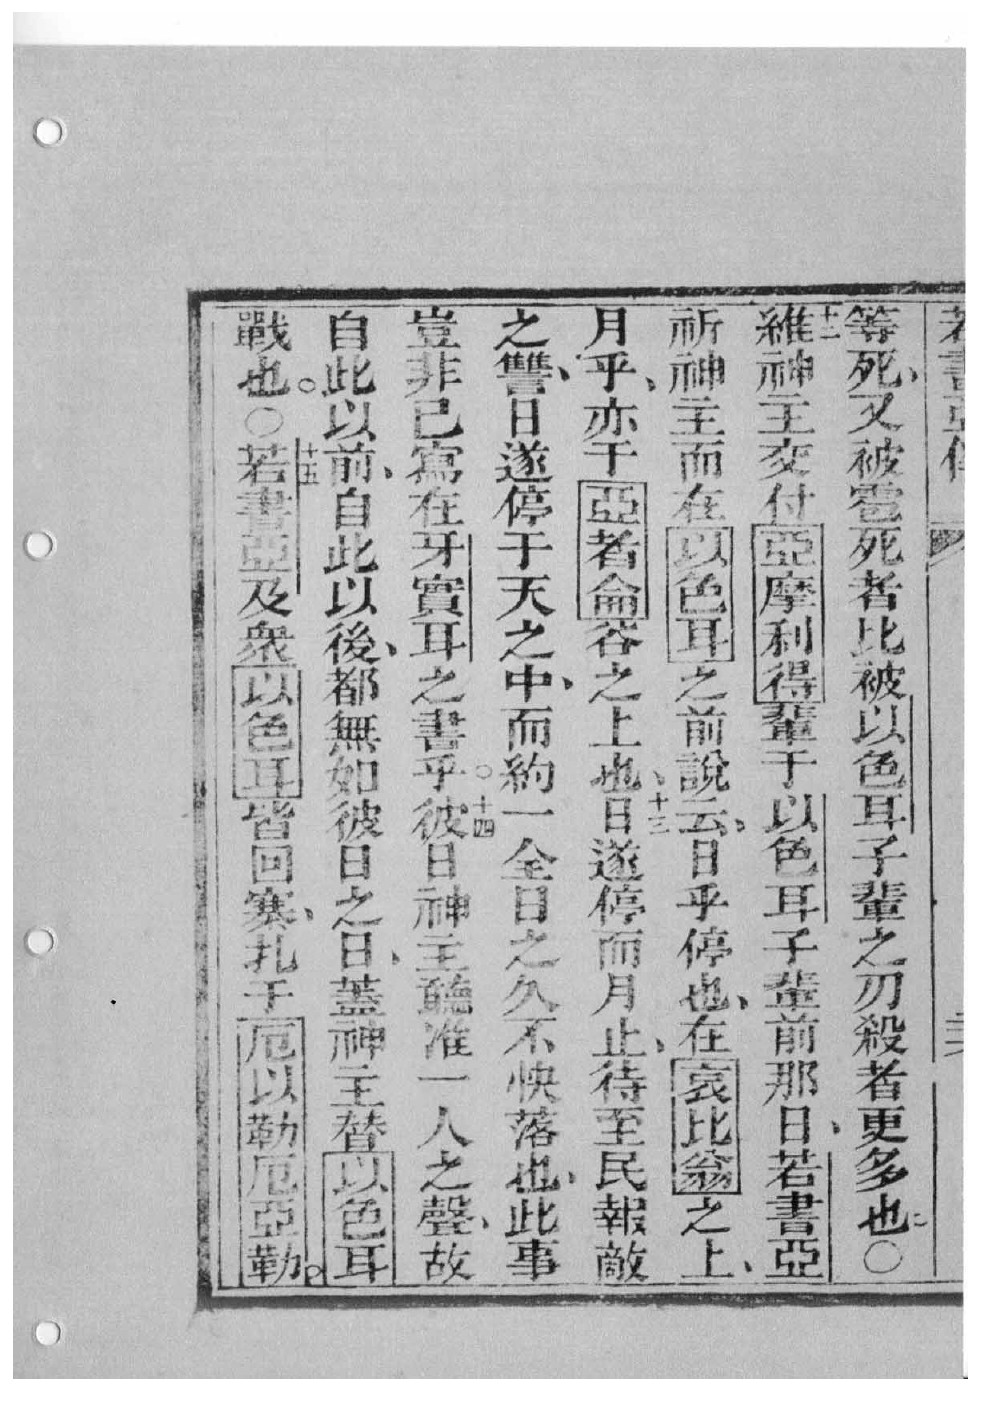 若書亞傳
等死、又被雹死者比被以色耳子輩之刃殺者更多也○
十二維神主交付亞摩利得輩于以色耳子輩前那日、若書亞
祈神主而在以色耳之前說云、日乎停也、在哀比翁之上、
月乎、亦于亞者侖谷之上也、十三日遂停而月止、待至民報敵
之讐、日遂停于天之中、而約一全日之久不快落也、此事
豈非已寫在牙實耳之書乎。十四彼日神主聽准一人之聲、故
自此以前、自此以後、都無如彼日之日、蓋神主替以色耳
戰也。○十五若書亞及衆以色耳皆回寨、扎于厄以勒厄亞勒。